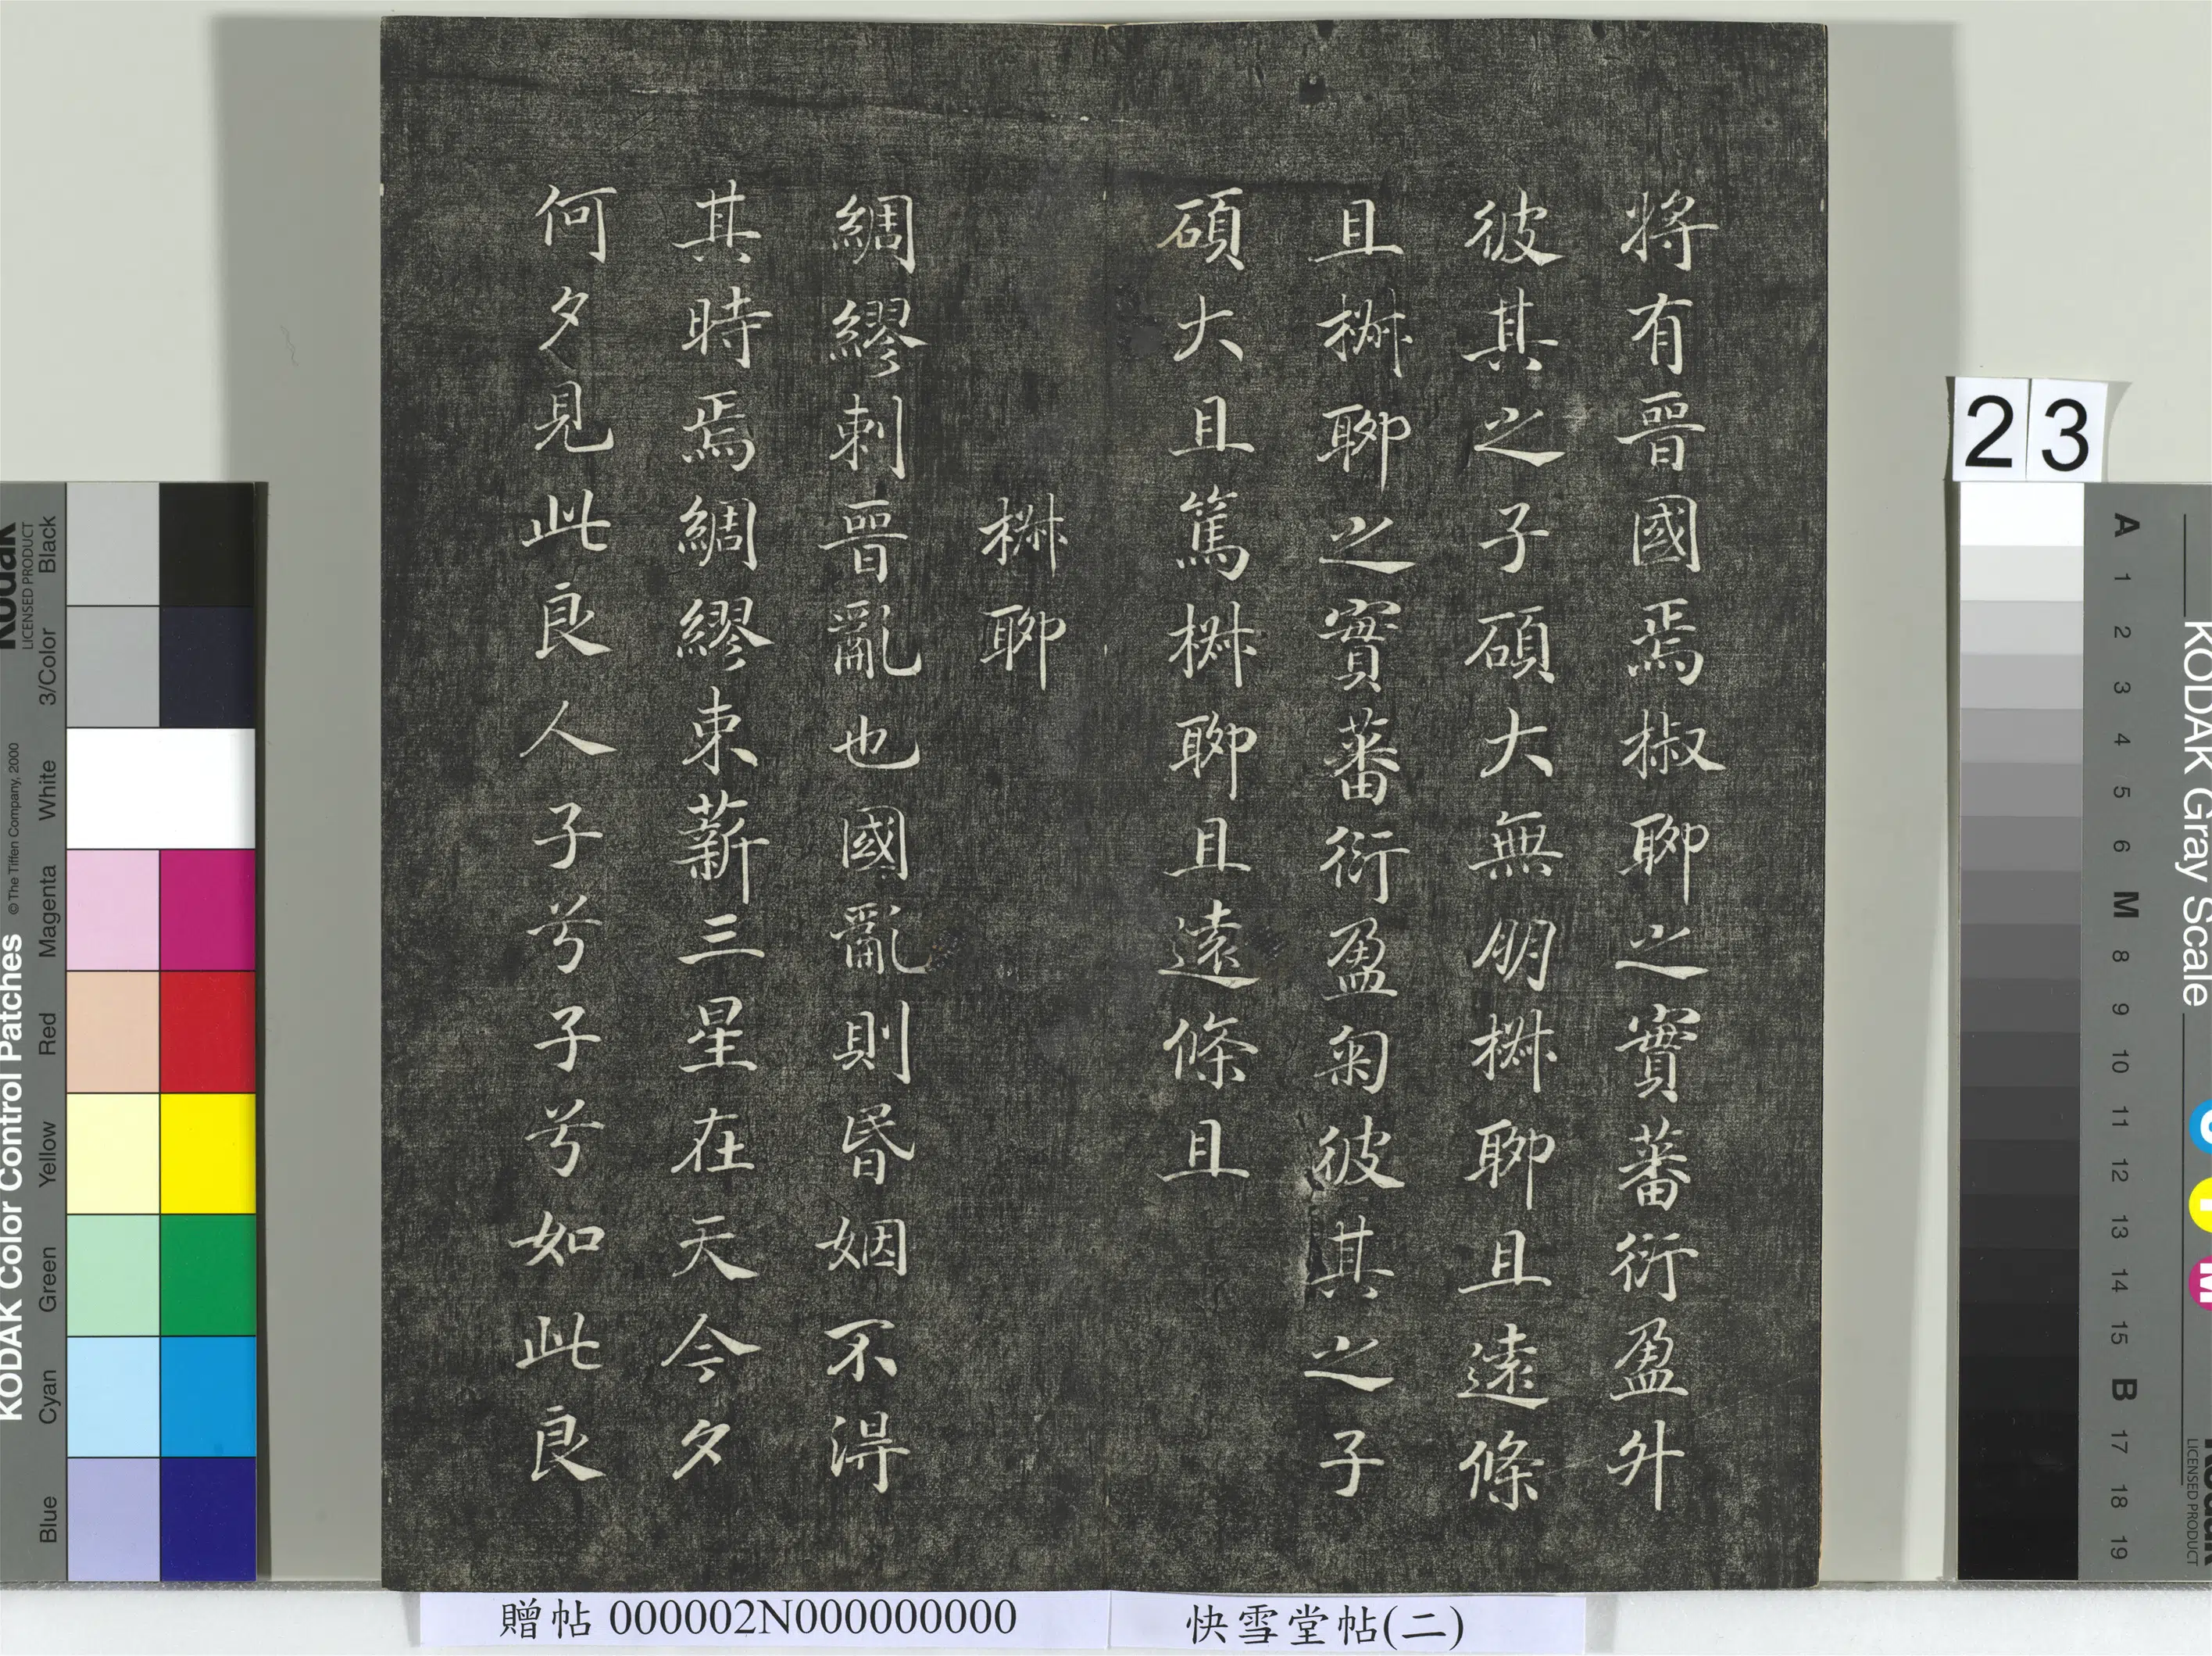 將有晉國焉椒聊之實蕃衍盈升
彼其之子碩大無朋椒聊且遠條
且椒聊之實蕃衍盈匊彼其之子
碩大且篤椒聊且遠條且
椒聊
綢繆刺晉亂也國亂則昬姻不得
其時焉綢繆束薪三星在天今夕
何夕見此良人子兮子兮如此良
23
贈帖 000002N000000000
快雪堂帖(二)
KODAK Color Control Patches
©The Tiffen Company, 2000
Kodak
LICENSED PRODUCT
Blue Cyan Green Yellow Red Magenta White 3/Color Black
KODAK Gray Scale
A 1 2 3 4 5 6 M 8 9 10 11 12 13 14 15 B 17 18 19
C Y M
Kodak
LICENSED PRODUCT